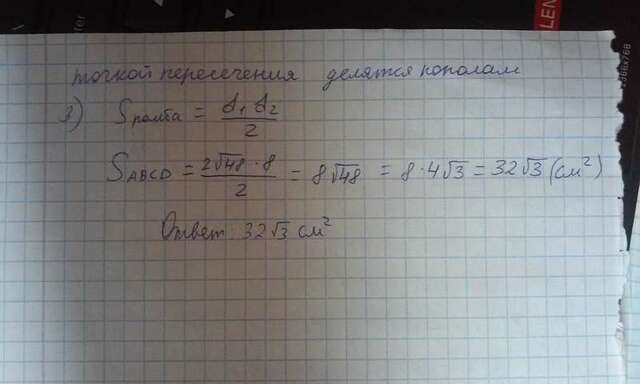 LEN
точкой пересечения делятся пополам
3) Sромба = d₁ d₂ / 2
S_ABCD = 2√48 · 8 / 2 = 8√48 = 8 · 4√3 = 32√3 (см²)
Ответ: 32√3 см²